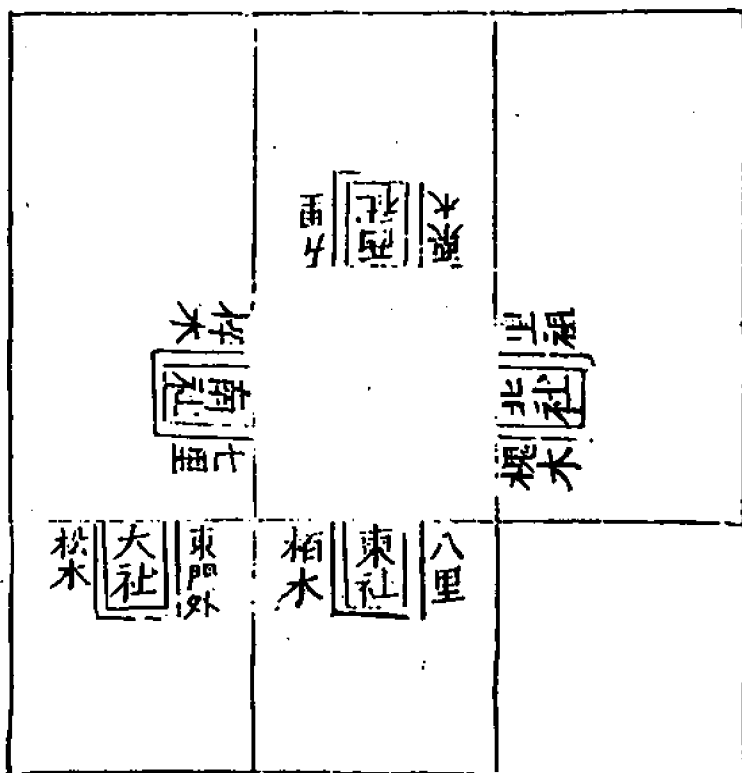 栗木
西社
九里
梓木
南社
七里
北社
槐木
八里
東社
栢木
東門外
大社
松木